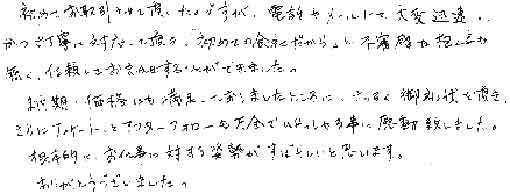 初めてお取引させて頂いたのですが、電話やメールにて大変迅速、
かつ丁寧に対応して頂き、初めての会社だからという不審感も抱く事
無く、信頼してお願いすることができました。
納期・価格にも満足しておりましたところに、さらに御礼状を頂き、
さらにアンケートとアフターフォローも万全でいらっしゃる事に感動致しました。
根本的に、お仕事に対する姿勢がすばらしいと思います。
ありがとうございました。